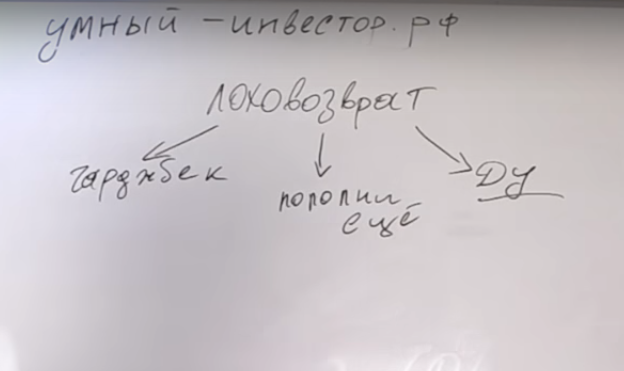 умный - инвестор.рф
лоховозврат
чарджбек
пополни
ещё
ДУ